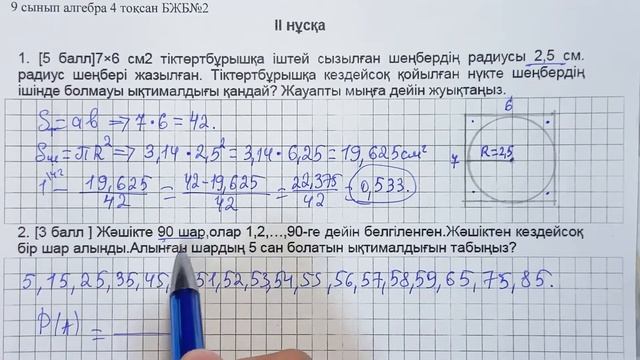 9 сынып алгебра 4 тоқсан БЖБ№2
II нұсқа
1. [5 балл]7×6 см2 тіктөртбұрышқа іштей сызылған шеңбердің радиусы 2,5 см.
радиус шеңбері жазылған. Тіктөртбұрышқа кездейсоқ қойылған нүкте шеңбердің
ішінде болмауы ықтималдығы қандай? Жауапты мыңға дейін жуықтаңыз.
= ab => 7·6 = 42.
6
= πR² => 3,14·2,5² = 3,14·6,25 = 19,625 см²
7 R=2,5
1 - 19,625/42 = 42-19,625/42 = 22,375/42 = 0,533.
2. [3 балл ] Жәшікте 90 шар,олар 1,2,…,90-ге дейін белгіленген.Жәшіктен кездейсоқ
бір шар алынды.Алынған шардың 5 сан болатын ықтималдығын табыңыз?
5, 15, 25, 35, 45, 51, 52, 53, 54, 55, 56, 57, 58, 59, 65, 75, 85.
P(A) =